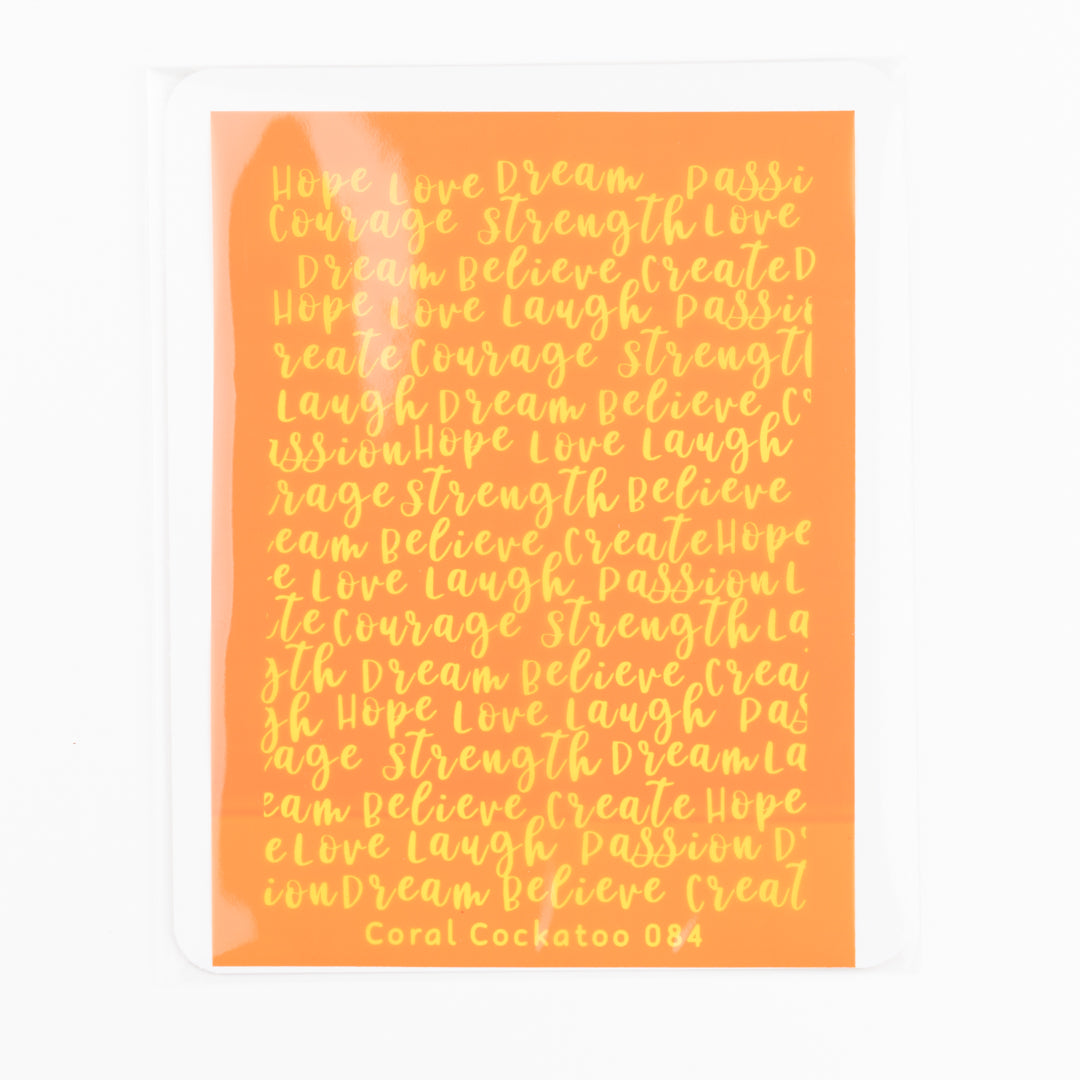 Hope Love Dream Passi
Courage Strength Love
Dream Believe Create D
Hope Love Laugh Passi
reate Courage Strengt
Laugh Dream Believe C
ssion Hope Love Laugh
rage Strength Believe
eam Believe Create Hope
e Love Laugh Passion L
te Courage Strength La
gth Dream Believe Crea
gh Hope Love Laugh Pas
age Strength Dream La
eam Believe Create Hope
e Love Laugh Passion D
ion Dream Believe Creat
Coral Cockatoo 084